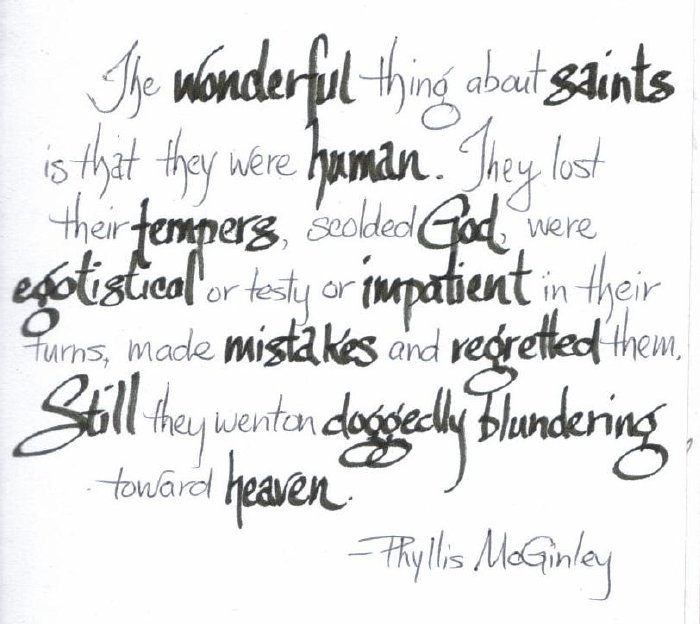 The wonderful thing about saints
is that they were human. They lost
their tempers, scolded God, were
egotistical or testy or impatient in their
turns, made mistakes and regretted them.
Still they went on doggedly blundering
toward heaven.
- Phyllis McGinley